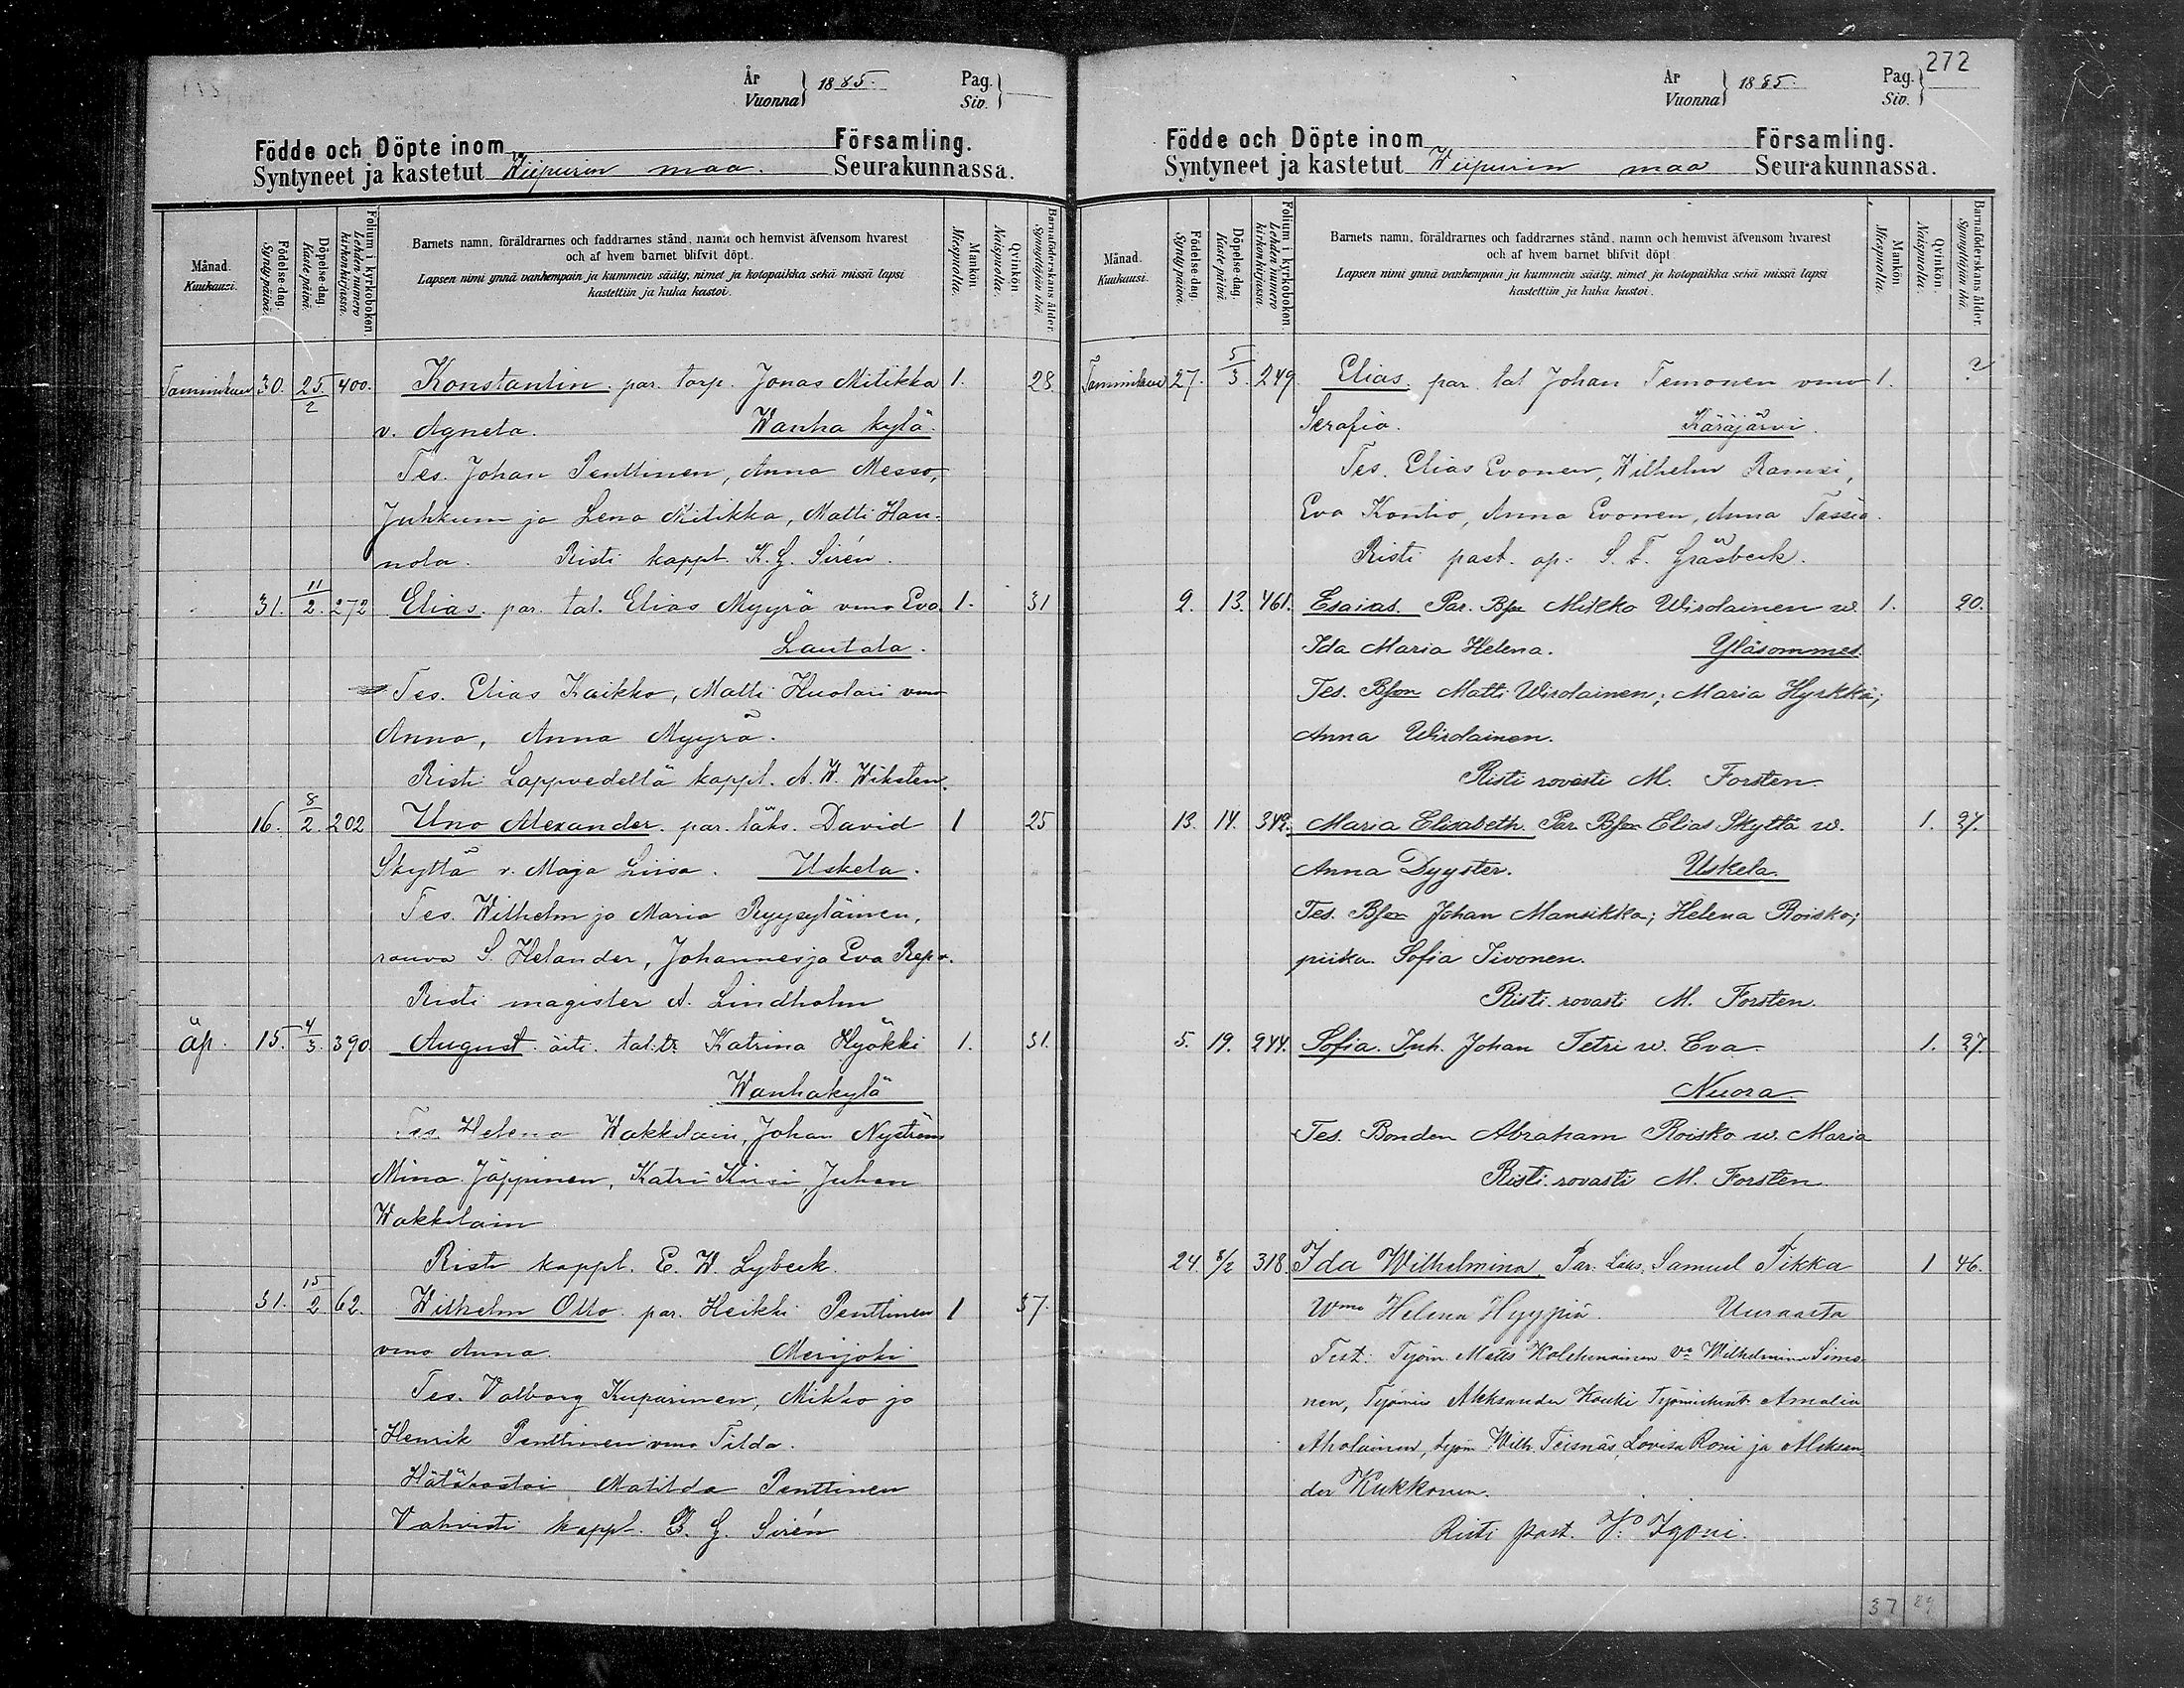 År
Vuonna } 1885.
Pag.
Siv. }
Födde och Döpte inom Församling.
Syntyneet ja kastetut Wiipurin maa. Seurakunnassa.
Månad.
Kuukausi.
Födelse-dag.
Syntypäivä.
Döpelse-dag.
Kastepäivä.
Folium i kyrkoboken.
Lehden numero
kirkonkirjassa.
Barnets namn, föräldrarnes och faddrarnes stånd, namn och hemvist äfvensom hvarest
och af hvem barnet blifvit döpt.
Lapsen nimi ynnä vanhempain ja kummein sääty, nimet ja kotopaikka sekä missä lapsi
kastettiin ja kuka kastoi.
Mankön
Miespuolia.
Qvinkön.
Naispuolia.
Barnaföderskans ålder.
Synnyttäjän ikä.
Tammikuu 30. 25/2 400. Konstantin. par. torp. Jonas Mitikka 1. 28.
v. Agneta. Wanha kylä.
Tes. Johan Penttinen, Anna Messo,
Juhkum ja Lena Mitikka, Matti Han-
nola. Risti kappl. K. G. Sirén.
31. 11/2. 272 Elias. par. tal. Elias Myyrä vmo Eva. 1. 31
Lautala.
Tes. Elias Kaikko, Matti Huolari vmo
Anna, Anna Myyrä.
Risti Lappvedellä kappl. A. W. Wiksten.
16. 8/2. 202 Uno Alexander. par. läks. David 1 25
Skyttä v. Maja Liisa. Uskela.
Tes. Wilhelm ja Maria Ryysyläinen,
rouva S. Helander, Johannes ja Eva Repo.
Risti magister A. Lindholm
äp. 15. 4/3. 390 August. äiti. tal.tr. Katrina Hyökki 1. 31.
Wanhakylä
Tes. Helena Wakkilain, Johan Nyström
Mina Jäppinen, Katri Kiisi, Juhan
Wakkilain
Risti kappl. E. W. Lybeck.
31. 15/2 62. Wilhelm Otto. par. Heikki Penttinen 1 37.
vmo Anna. Merijoki
Tes. Valborg Kuparinen, Mikko ja
Henrik Penttinen vmo Tilda.
Hätäkastoi Matilda Penttinen
Vahvisti kappl. K. G. Sirén
272
År
Vuonna } 1885.
Pag.
Siv. }
Födde och Döpte inom Församling.
Syntyneet ja kastetut Wiipurin maa Seurakunnassa.
Månad.
Kuukausi.
Födelse-dag.
Syntypäivä.
Döpelse-dag.
Kastepäivä.
Folium i kyrkoboken
Lehden numero
kirkonkirjassa.
Barnets namn, föräldrarnes och faddrarnes stånd, namn och hemvist äfvensom hvarest
och af hvem barnet blifvit döpt
Lapsen nimi ynnä vanhempain ja kummein sääty, nimet ja kotopaikka sekä missä lapsi
kastettiin ja kuka kastoi.
Mankön
Miespuolia.
Qvinkön.
Naispuolia.
Barnaföderskans ålder.
Synnyttäjän ikä.
Tammikuu 27. 5/3. 249 Elias. par. tal Johan Temonen vmo 1. ?
Serafia. Käräjärvi.
Tes. Elias Evonen, Wilhelm Ramsi,
Eva Kontio, Anna Evonen, Anna Tassia.
Risti past. ap. S. F. Gräsbeck.
2. 13. 461. Esaias. Par. Bfon Mikko Wirolainen w. 1. 20.
Ida Maria Helena. Yläsommes.
Tes. Bfon Matti Wirolainen; Maria Hyrkkä;
Anna Wirolainen.
Risti rovasti M. Forsten.
13. 14. 342. Maria Elisabeth. Par. Bfon Elias Skyttä w. 1. 27.
Anna Dyyster. Uskela.
Tes. Bfon Johan Mansikka; Helena Roisko;
piika Sofia Iivonen.
Risti rovasti M. Forsten.
5. 19. 244. Sofia. Inh. Johan Tetri w. Eva. 1. 27.
Nuora.
Tes. Bonden Abraham Roisko w. Maria
Risti rovasti M. Forsten.
24. 8/2 318. Ida Wilhelmina. Par. Läks. Samuel Tikka 1 46.
Wmo Helena Hyypiä. Uuraasta
Test. Työm. Matts Kolehmainen Vo Wilhelmina Simo-
nen, Työmies Aleksander Kouki Amalia
Aholainen, työm Wilh. Teisnäs, Lovisa Roni ja Aleksan-
der Kukkonen.
Risti past. J. Igoni.
37 29